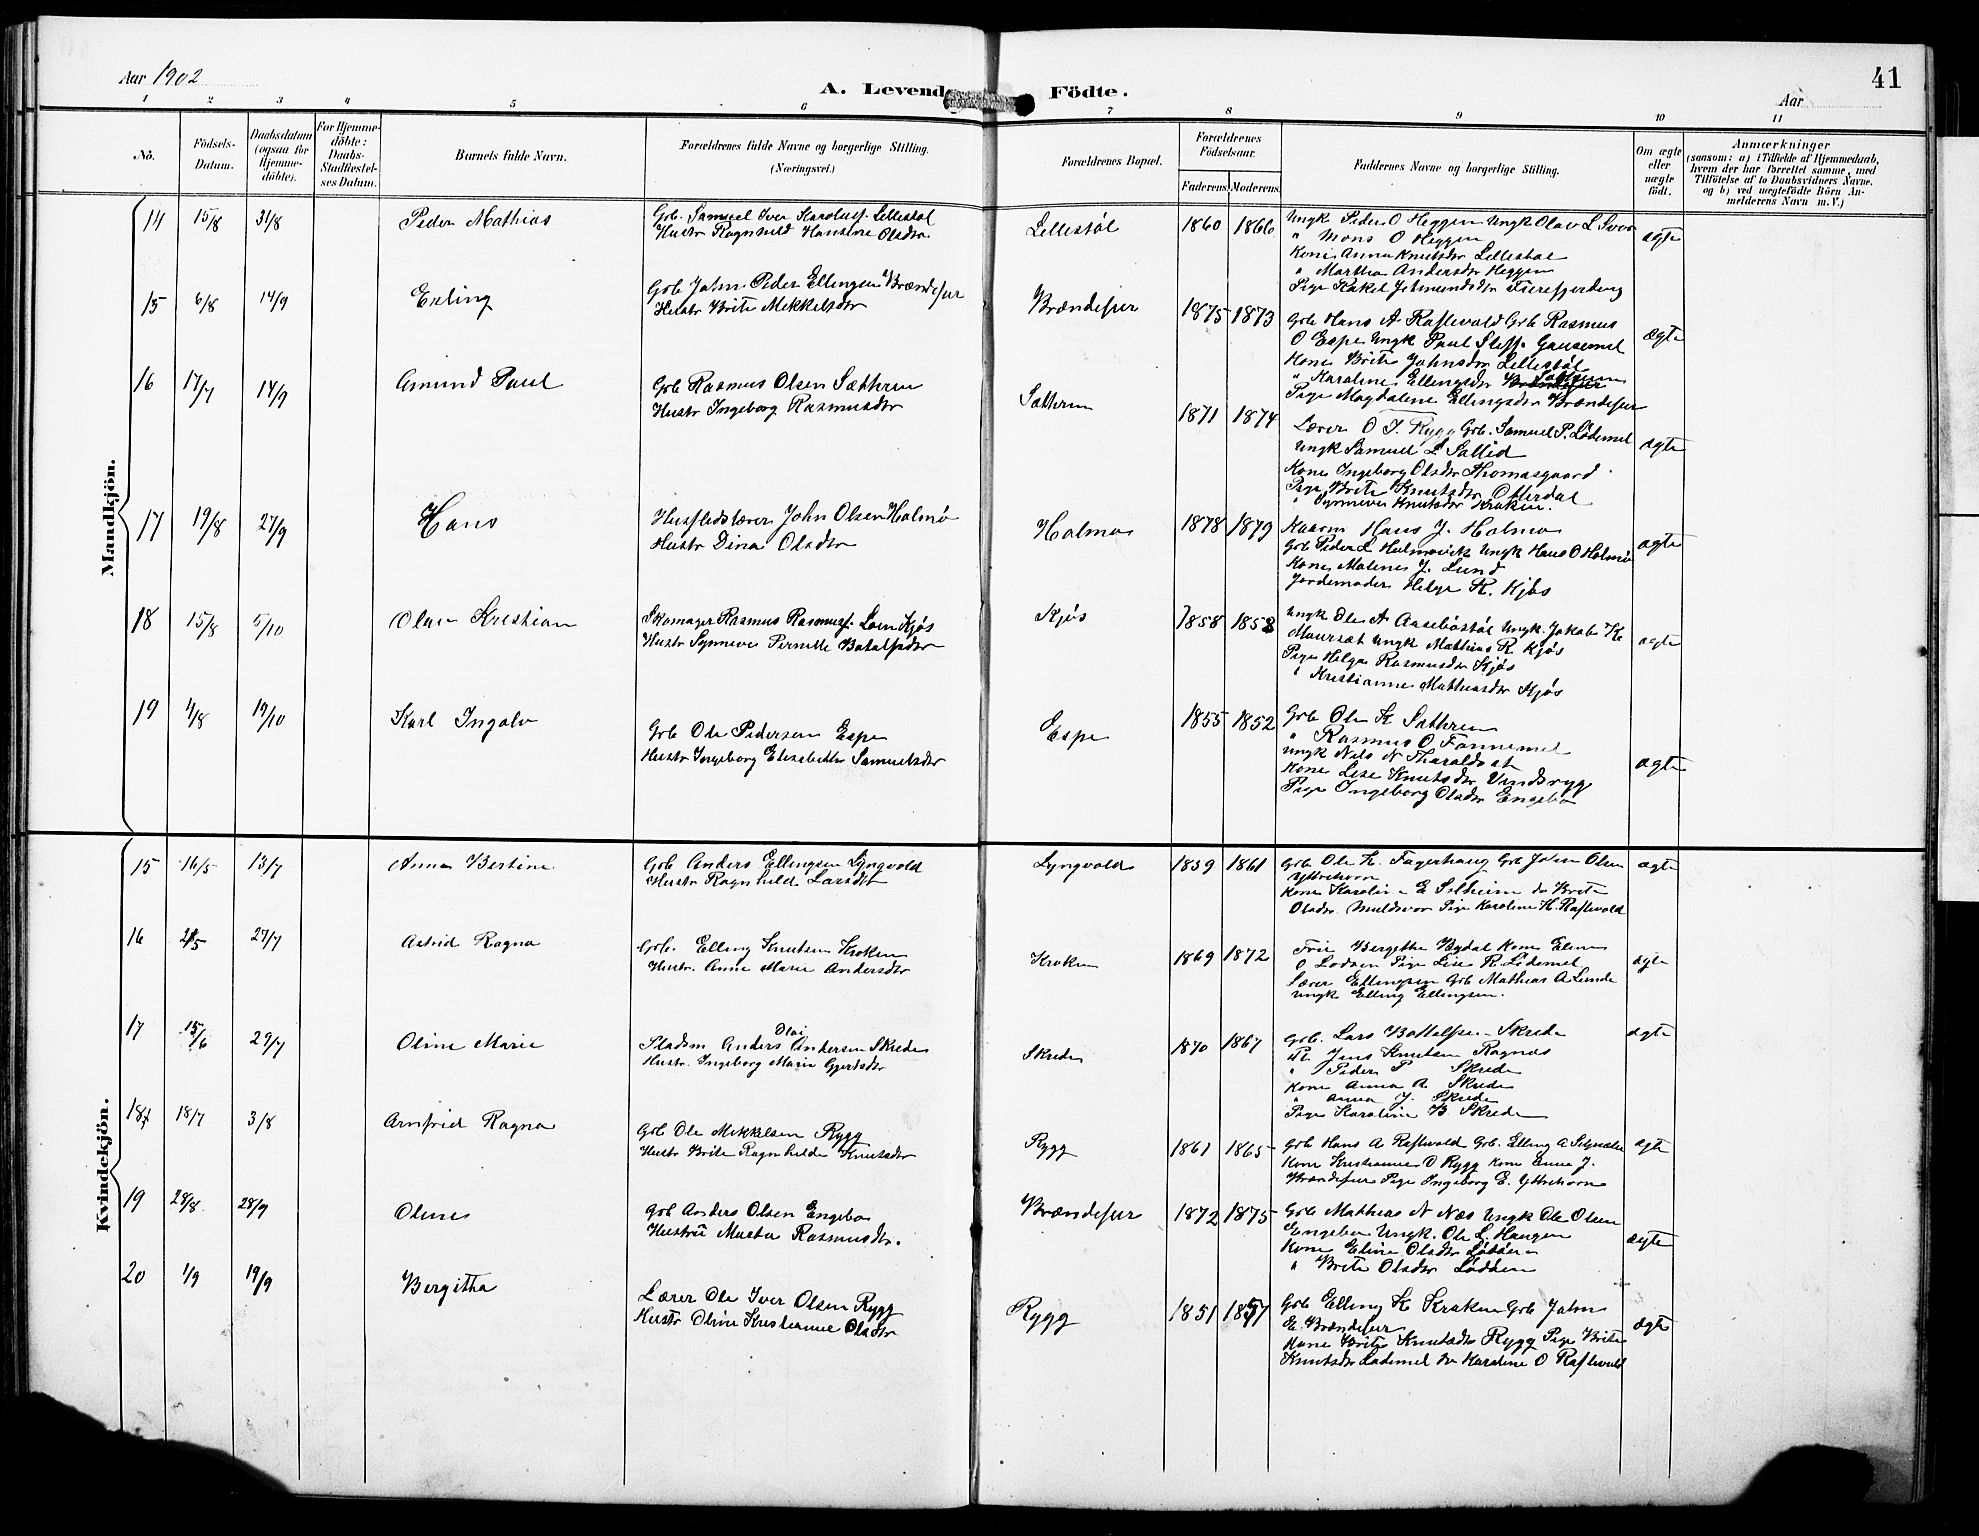 Aar 1902
A. Levende Födte.
41
Aar
1 2 3 4 5 6 7 8 9 10 11
No.
Födsels-Datum.
Daabsdatum (ogsaa for Hjemmedöbte).
For Hjemmedöbte: Daabs-Stadfæstelses Datum.
Barnets fulde Navn.
Forældrenes fulde Navne og borgerlige Stilling.
(Næringsvei.)
Forældrenes Bopæl.
Forældrenes Födselsaar.
Faderens. Moderens.
Faddernes Navne og borgerlige Stilling.
Om ægte eller uægte födt.
Anmærkninger
(saasom: a) i Tilfælde af Hjemmedaab, hvem der har forrettet samme, med Tilföielse af to Daabsvidners Navne, og b) ved uægtefödte Börn Anmelderens Navn m. V.)
Mandkjön.
14 15/8 31/8 Peder Mathias
Grb. Samuel Iver Karolusf. Lillestøl
Hustr Ragnhild Hansine Olsdtr.
Lillestøl 1860 1866
Ungk Peder O Heggen Ungk Olav L Svor
" Mons O Heggen
Kone Anna Knutsdtr Lillestøl
" Martha Andersdtr Heggen
Pige Rakel Jetmundsdtr
ægte
15 6/8 14/9 Erling
Grb John Peder Ellingsen Brændefur
Hustr Brite Mikkelsdtr
Brændefur 1875 1873
Grb Hans A Raftevold Grb Rasmus
O Espe Ungk Paul Steff. Gausemel
Kone Brite Johnsdtr Lillestøl
" Karoline Ellingsdtr Sæthren
Pige Magdalene Ellingsdtr Brændefur
ægte
16 17/7 14/9 Amund Paul
Grb Rasmus Olsen Sæthren
Hustr Ingeborg Rasmusdtr
Sæthren 1871 1874
Lærer O I. Rygg Grb. Samuel P. Lødemel
Ungk Samuel L Sallid
Kone Ingeborg Olsdtr Thomasgaard
Pige Brite Knutsdtr Otterdal
" Synneve Knutsdtr Kroken.
ægte
17 19/8 27/9 Hans
Husflidslærer John Olsen Holmø
Hustr Dina Olsdtr
Holmø 1878 1879
Kaarm Hans J. Holmø
Grb Peder L Holmøvik Ungk Hans O Holmø
Kone Malene J. Lund
Jordemoder Helge R. Kjøs
ægte
18 15/8 5/10 Olav Kristian
Skomager Rasmus Rasmusf. Loen Kjøs
Hustr Synneve Pernille Botolfsdtr
Kjøs 1858 1858
Ungk Ole A Aasebøstøl Ungk. Jakob K.
Maursæt Ungk Mathias R. Kjøs
Pige Helga Rasmusdtr Kjøs
" Kristianne Mathiasdtr Kjøs
ægte
19 4/8 19/10 Karl Ingolv
Grb Ole Pedersen Espe
Hustr Ingeborg Elisabeth Samuelsdtr
Espe 1855 1852
Grb Ole K Sæthren
" Rasmus O Tonnemel
Ungk Nils N Tharaldset
Kone Lise Knutsdtr Vindsryg
Pige Ingeborg Olsdtr Engebø
ægte
Kvindekjön.
15 16/5 13/7 Anna Bertine
Grb Anders Ellingsen Lyngvold
Hustr Ragnhild Larsdt
Lyngvold 1859 1861
Grb Ole K. Fagerhaug Grb John Olsen
Yttrehorn
Kone Karoline E Sølheim do Brite
Olsdtr. Muldsvor Pige Karoline H. Raftevold
ægte
16 27/7 Astrid Ragna
Grb. Elling Knutsen Kroken
Hustr. Anne Marie Andersdtr
Kroken 1869 1872
Frue Bergithe Bydal Kone Elene
O Lødøen Pige Lise R. Lødemel
Lærer Ellingsen Grb Mathias A Lunde
Ungk Elling Ellingsen.
ægte
17 15/6 27/7 Oline Marie
Pladsm Anders Olai Andersen Skrede
Hustr. Ingeborg Marie Gjertsdtr
Skrede 1870 1867
Grb. Lars Bottolfsen Skrede
Jens Knutsen Ragnæs
" Peder P Skrede
Kone Anna A Skrede
" Anna J. Skrede
Pige Karoline B Skrede
ægte
18 18/7 3/8 Arnfrid Ragna
Grb Ole Mikkelsen Rygg
Hustr Brite Ragnhilde Knutsdtr
Rygg 1861 1865
Grb Hans A Raftevold Grb. Elling A
Kone Kristianne O Rygg Kone Enne J.
Brændefur Pige Ingeborg E. Yttrehorn
ægte
19 28/8 28/9 Oline
Grb Anders Olsen Engebø
Hustru Marta Rasmusdtr.
Brændefur 1872 1875
Grb Mathias N Næs Ungk Ole Olsen
Engebø Ungk. Ole L. Haugen
Kone Eline Olsdtr Lødøen
" Brite Olsdtr Lødøen
ægte
20 1/9 19/9 Bergitha
Lærer Ole Iver Olsen Rygg
Hustr Oline Kristianne Olsdtr
Rygg 1851 1857
Grb Elling K Kroken Grb John
E. Brændefur
Kone Brite Knutsdtr Rygg Pige Brite
Knutsdtr Lødemel do Karoline O Raftevold
ægte